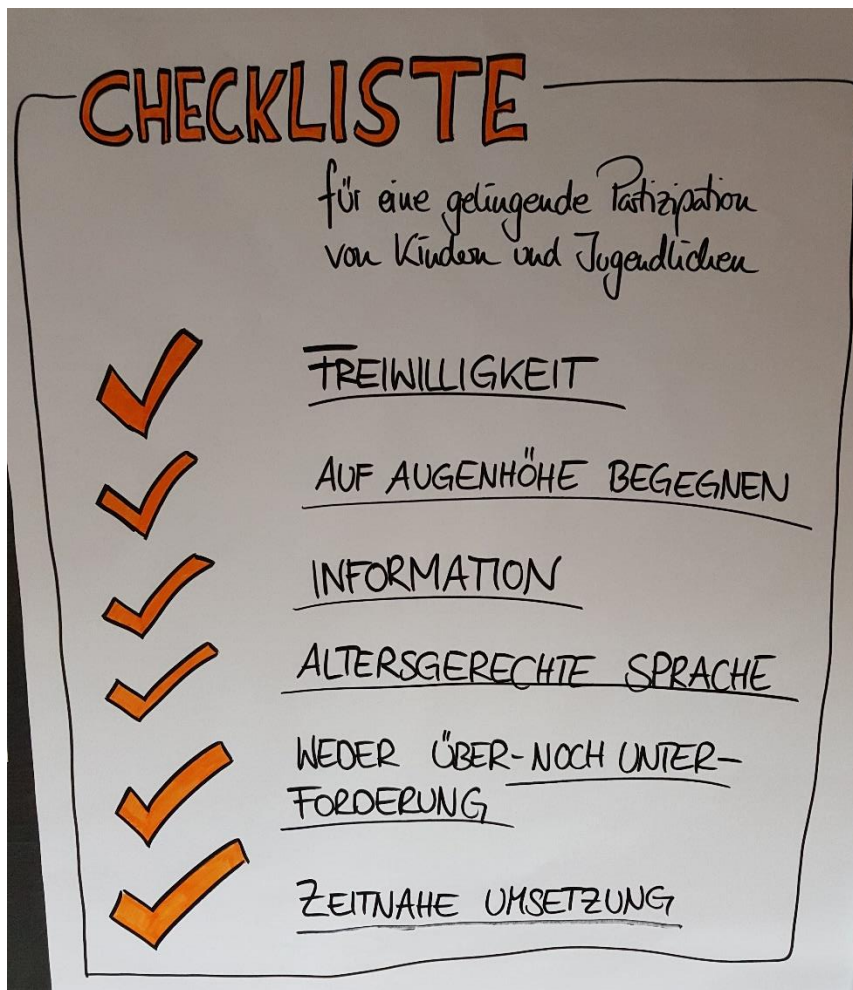 CHECKLISTE
für eine gelingende Partizipation
von Kindern und Jugendlichen
FREIWILLIGKEIT
AUF AUGENHÖHE BEGEGNEN
INFORMATION
ALTERSGERECHTE SPRACHE
WEDER ÜBER-NOCH UNTER-
FORDERUNG
ZEITNAHE UMSETZUNG